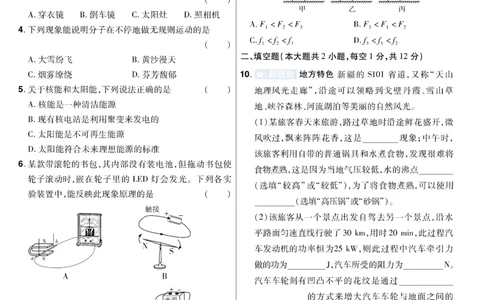 A. 穿衣镜 B. 倒车镜 C. 太阳灶 D. 照相机
4. 下列现象能说明分子在不停地做无规则运动的是
( )
A. 大雪纷飞 B. 黄沙漫天
C. 烟雾缭绕 D. 芬芳馥郁
5. 关于核能和太阳能,下列说法正确的是 ( )
A. 核能是一种清洁能源
B. 现有核电站是利用聚变来发电的
C. 太阳能是不可再生能源
D. 太阳能符合未来理想能源的标准
6. 某款带滚轮的书包,其内部没有装电池,但拖动书包使
轮子滚动时,嵌在轮子里的 LED 灯会发光。下列各实
验装置中,能反映此现象原理的是 ( )
接触
N S
A B
甲 乙 丙
A. F₁<F₂<F₃ B. F₃<F₂<F₁
C. f₁<f₂<f₃ D. f₃<f₂<f₁
二、填空题(本大题共 2 小题,每空 1 分,共 12 分)
10. 地方特色 新疆的 S101 省道,又称“天山
地理风光走廊”,沿途可以领略到戈壁丹霞、雪山草
地、峡谷森林、河流湖泊等美丽的自然风光。
(1)某旅客春天来旅游,路过草地时沿途鲜花盛开,微
风吹过,飘来阵阵花香,这是________现象;中午时,
该旅客利用自带的普通锅具和水煮食物,发现很难将
食物煮熟,这是因为当地气压较低,水的沸点________
(选填“较高”或“较低”),为了将食物煮熟,可以使用
________(选填“高压锅”或“砂锅”)。
(2)该旅客从一个景点出发自驾去另一个景点,沿水
平路面匀速直线行驶了 30 km,用时 20 min,此过程汽
车发动机的功率恒为25 kW,则此过程中汽车牵引力
做的功为________J,汽车所受的阻力为________N。
汽车车轮刻有凹凸不平的花纹是通过________
________的方式来增大汽车车轮与地面之间的